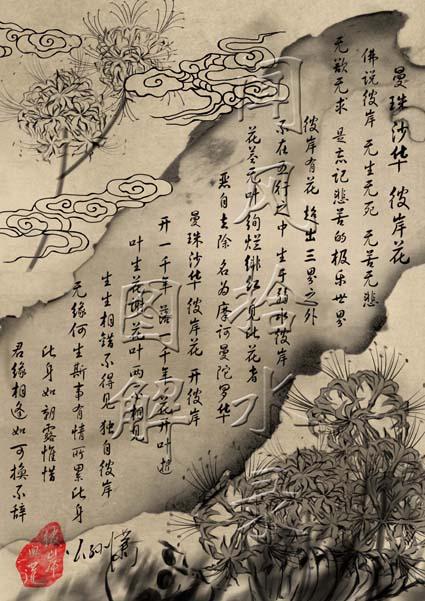 曼珠沙华 彼岸花
佛说彼岸 无生无死 无苦无悲
无欲无求 是忘记悲苦的极乐世界
彼岸有花 给出三界之外
不在五行之中 生于弱水彼岸
花茎无叶 绚烂绯红 见此花者
恶自去除 名为摩诃曼陀罗华
曼珠沙华 彼岸花 开彼岸
开一千年 落一千年 花开叶逝
叶生花谢 花叶两不相见
生生相错 不得见 独自彼岸
无缘何生斯事 有情所累此身
此身如朝露惟惜
君缘相逢如可换不辞
闲风拾水录
图解